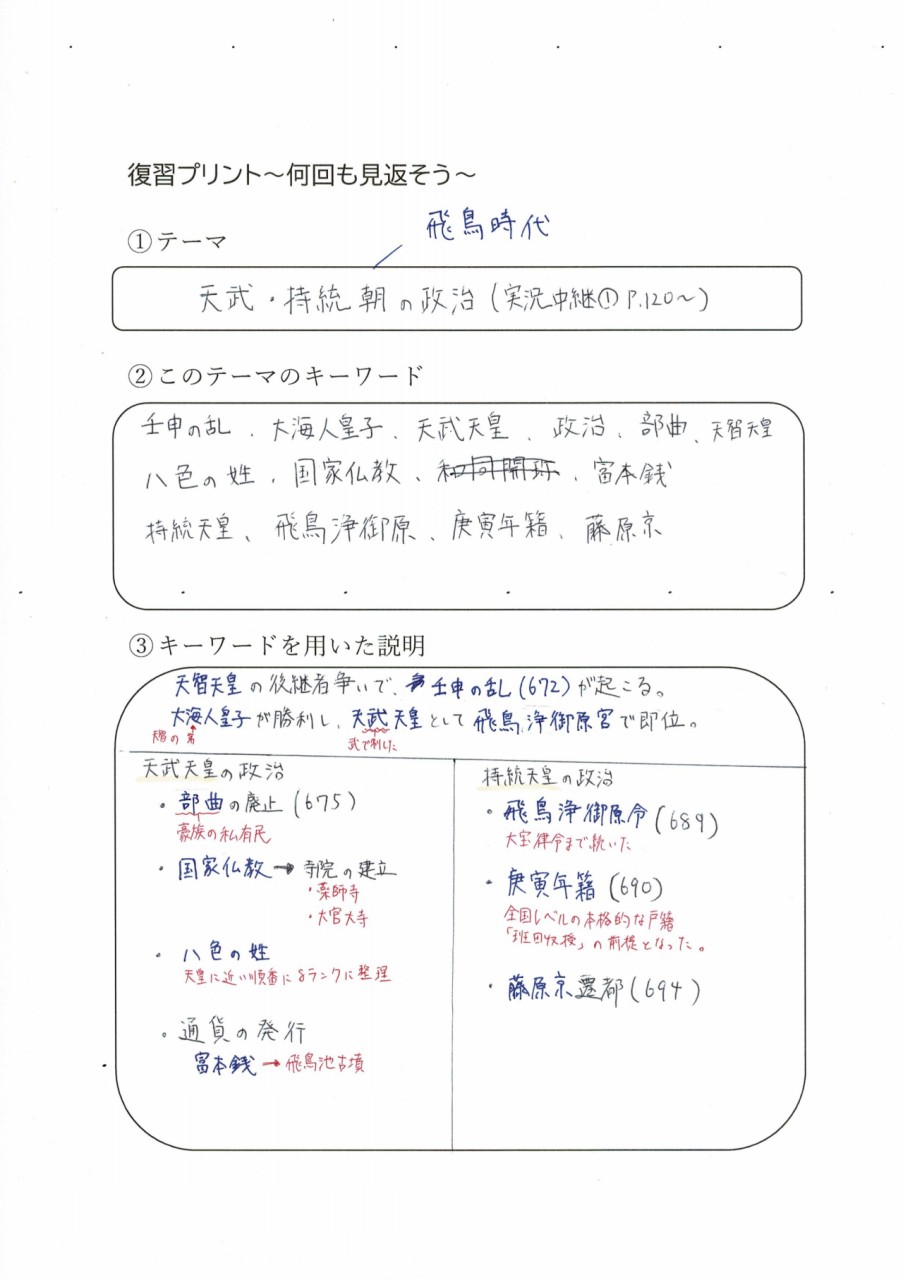 復習プリント～何回も見返そう～
飛鳥時代
①テーマ
天武・持統朝の政治(実況中継① P.120～)
②このテーマのキーワード
壬申の乱、大海人皇子、天武天皇、政治、部曲、天智天皇
八色の姓、国家仏教、和同開珎、富本銭
持統天皇、飛鳥浄御原、庚寅年籍、藤原京
③キーワードを用いた説明
天智天皇の後継者争いで、壬申の乱(672)が起こる。
大海人皇子が勝利し、天武天皇として飛鳥浄御原宮で即位。
天智の弟
武で制した
天武天皇の政治
・部曲の廃止(675)
豪族の私有民
・国家仏教→寺院の建立
・薬師寺
・大官大寺
・八色の姓
天皇に近い順番に8ランクに整理
・通貨の発行
富本銭→飛鳥池古墳
持統天皇の政治
・飛鳥浄御原令(689)
大宝律令まで続いた
・庚寅年籍(690)
全国レベルの本格的な戸籍
「班田収授」の前提となった。
・藤原京遷都(694)